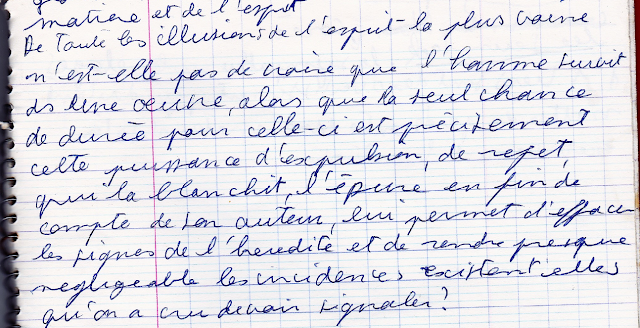 matière et de l'esprit
De toute les illusions de l'esprit la plus vaine
n'est-elle pas de croire que l'homme survit
ds une oeuvre, alors que la seul chance
de durée pour celle-ci est précisement
cette puissance d'expulsion, de rejet,
qui la blanchit, l'épure en fin de
compte de son auteur, lui permet d'effacer
les signes de l'hérédité et de rendre presque
negligeable les incidences existentielles
qu'on a cru devoir signaler?